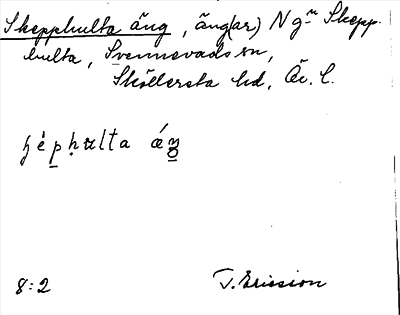 Skepphulta äng, äng(ar) N gᵐ Skepp-
hulta, Svennevads sn,
Sköllersta hd, Ör. l.
8:2 T. Ericsson